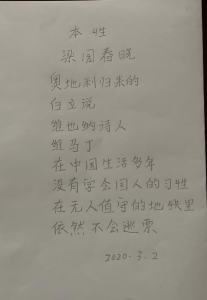 本性
梁园春晓
奥地利归来的
白立说
维也纳诗人
维马丁
在中国生活多年
没有学会国人的习性
在无人值守的地铁里
依然不会逃票
2020-3.2